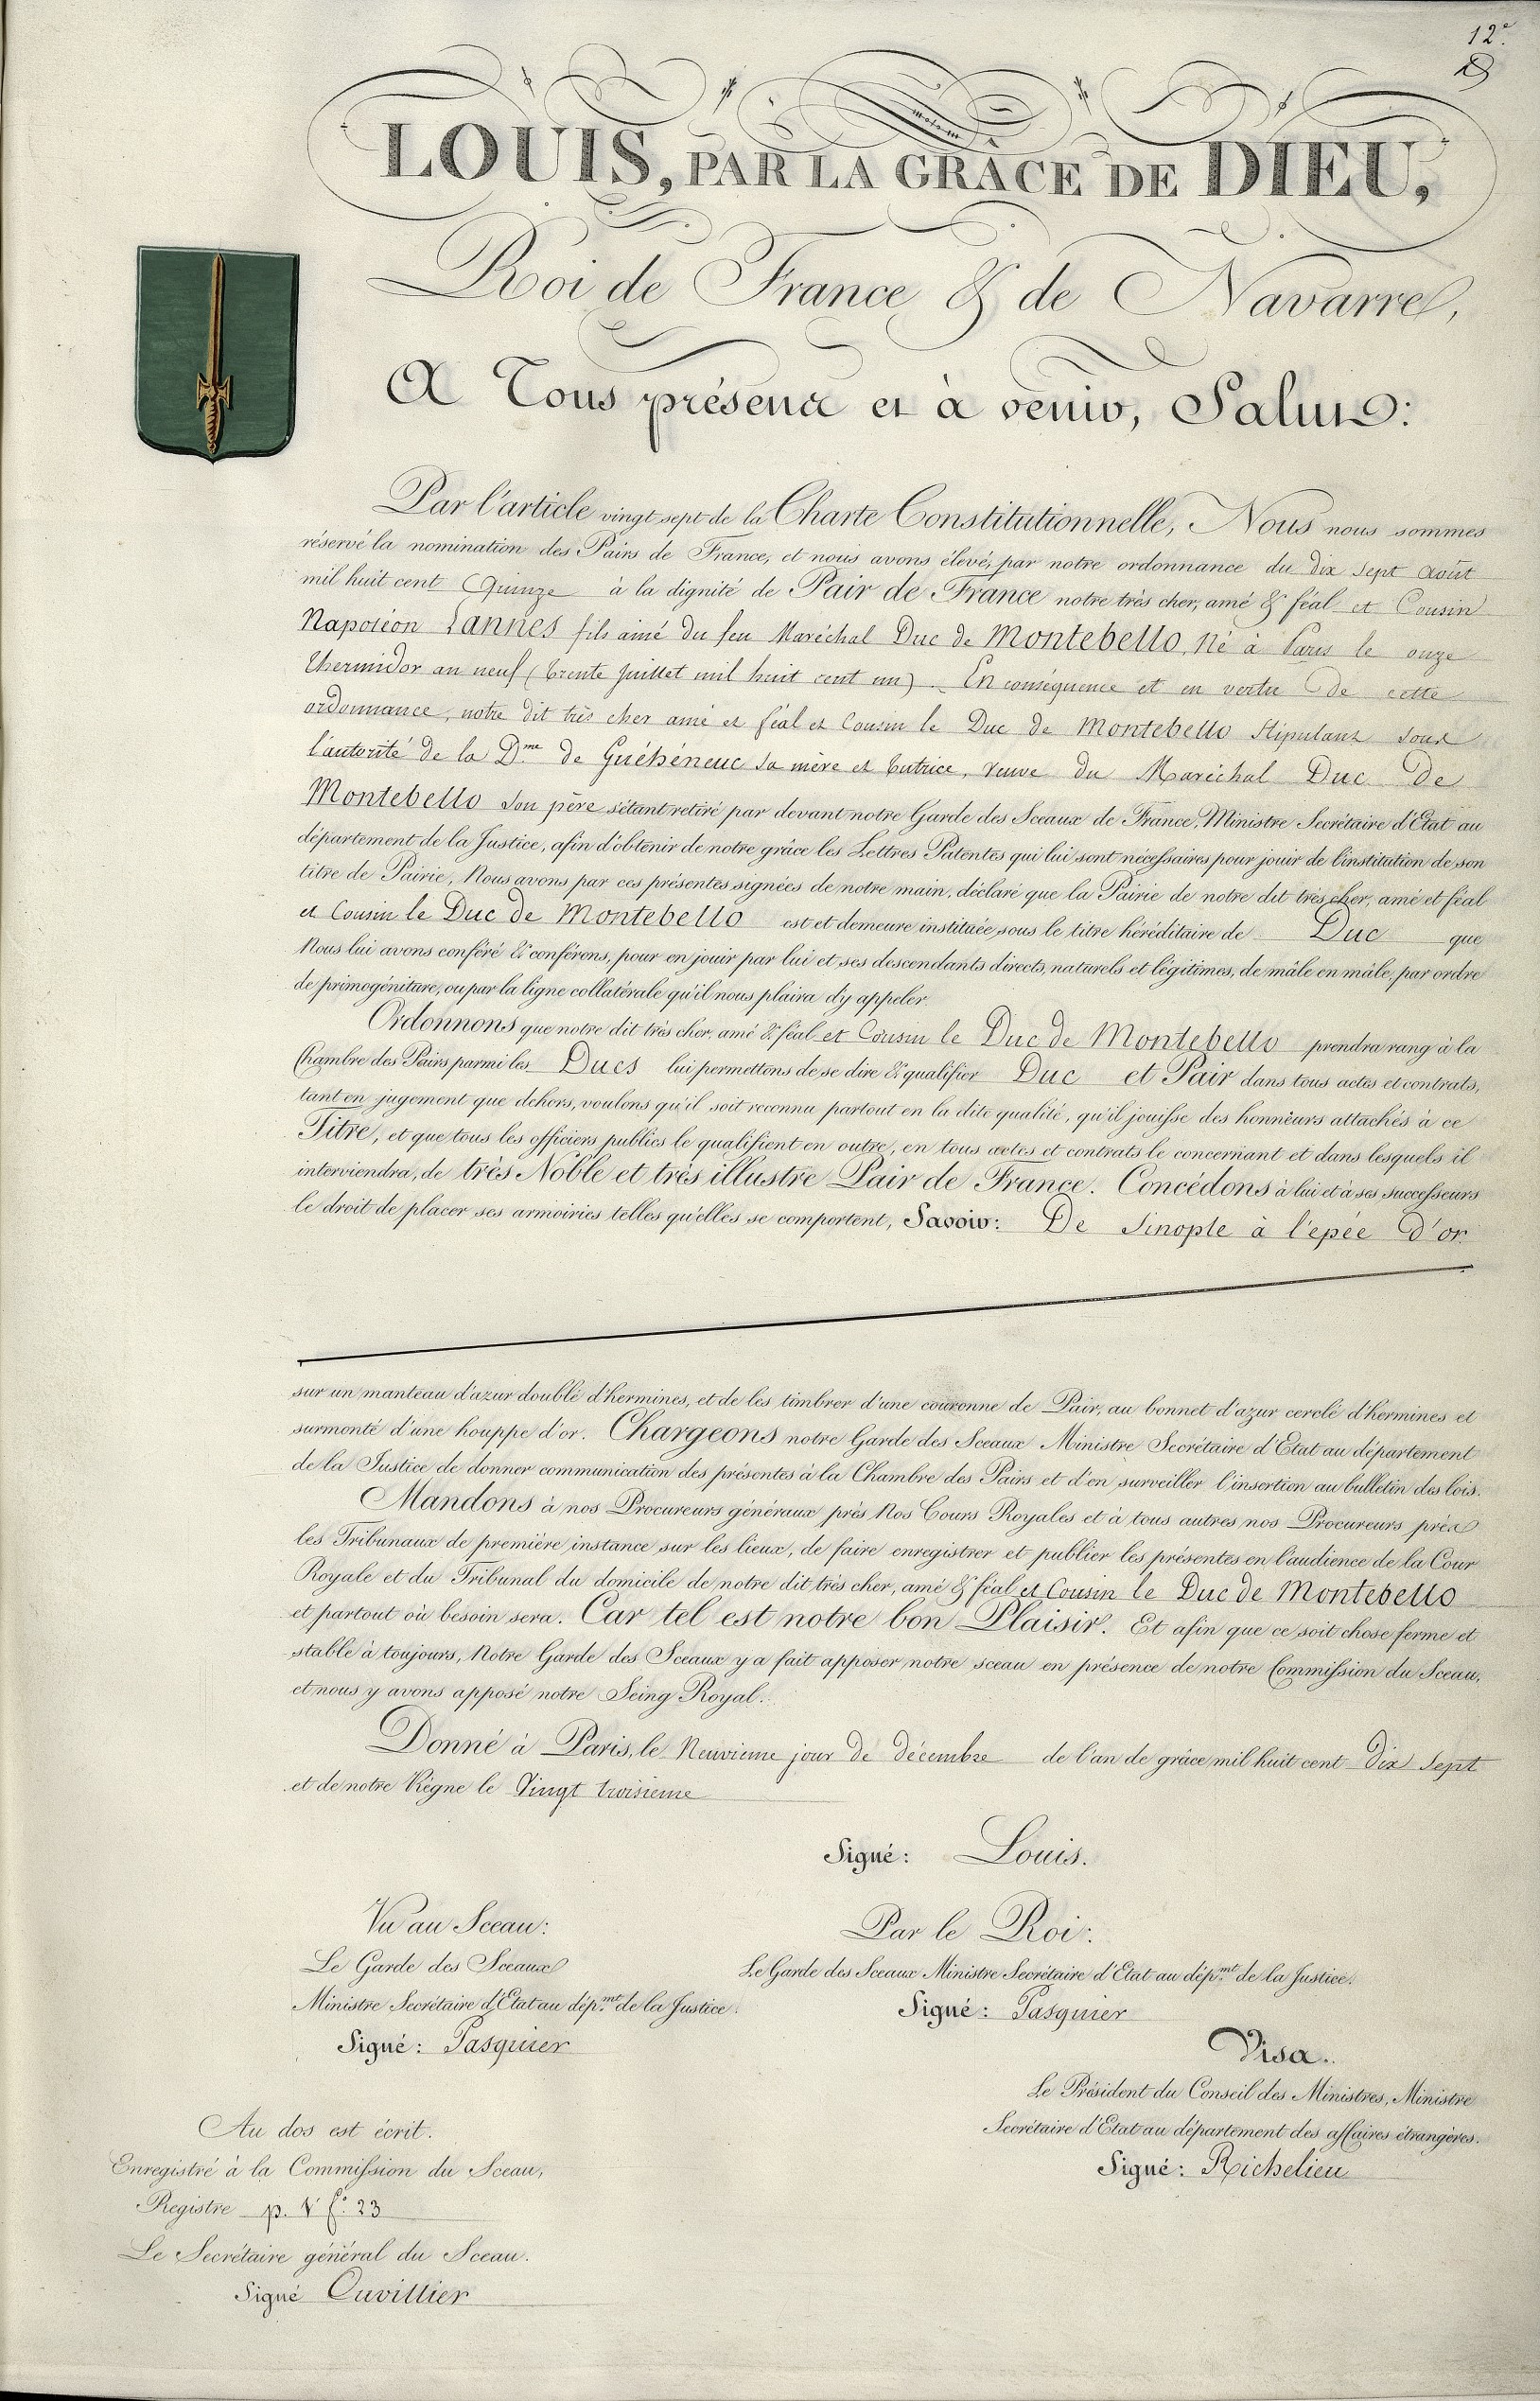 12.e
LOUIS, PAR LA GRÂCE DE DIEU,
Roi de France & de Navarre,
A Tous présens et à venir, Salut:
Par l'article vingt sept de la Charte Constitutionnelle, Nous nous sommes
réservé la nomination des Pairs de France, et nous avons élevé, par notre ordonnance du dix sept août
mil huit cent Quinze à la dignité de Pair de France notre très cher, amé & féal et Cousin
Napoléon Lannes fils ainé du feu Maréchal Duc de Montebello, Né à Paris le onze
thermidor an neuf (trente Juillet mil huit cent un). En conséquence et en vertu de cette
ordonnance, notre dit très cher amé et féal et Cousin le Duc de Montebello Stipulant sous
l'autorité de la D.me de Guéhéneuc sa mère et tutrice, veuve du Maréchal Duc de
Montebello son père s'étant retiré par devant notre Garde des Sceaux de France, Ministre Secrétaire d'Etat au
département de la Justice, afin d'obtenir de notre grâce les Lettres Patentes qui lui sont nécessaires pour jouir de l'institution de son
titre de Pairie, Nous avons par ces présentes signées de notre main, déclaré que la Pairie de notre dit très cher, amé et féal
et Cousin le Duc de Montebello est et demeure instituée sous le titre héréditaire de Duc que
Nous lui avons conféré & conférons, pour en jouir par lui et ses descendants directs, naturels et légitimes, de mâle en mâle, par ordre
de primogéniture, ou par la ligne collatérale qu'il nous plaira d'y appeler.
Ordonnons que notre dit très cher, amé & féal et Cousin le Duc de Montebello prendra rang à la
Chambre des Pairs parmi les Ducs lui permettons de se dire & qualifier Duc et Pair dans tous actes et contrats,
tant en jugement que dehors, voulons qu'il soit reconnu partout en la dite qualité, qu'il jouisse des honneurs attachés à ce
Titre, et que tous les officiers publics le qualifient en outre, en tous actes et contrats le concernant et dans lesquels il
interviendra, de très Noble et très illustre Pair de France. Concédons à lui et à ses successeurs
le droit de placer ses armoiries telles qu'elles se comportent, Savoir: De Sinople à l'epée d'or.
sur un manteau d'azur doublé d'hermines, et de les timbrer d'une couronne de Pair, au bonnet d'azur cerclé d'hermines et
surmonté d'une houppe d'or. Chargeons notre Garde des Sceaux Ministre Secrétaire d'Etat au département
de la Justice de donner communication des présentes à la Chambre des Pairs et d'en surveiller l'insertion au bulletin des lois.
Mandons à nos Procureurs généraux près Nos Cours Royales et à tous autres nos Procureurs près
les Tribunaux de première instance sur les lieux, de faire enregistrer et publier les présentes en l'audience de la Cour
Royale et du Tribunal du domicile de notre dit très cher, amé & féal et Cousin le Duc de Montebello
et partout où besoin sera. Car tel est notre bon Plaisir. Et afin que ce soit chose ferme et
stable à toujours, Notre Garde des Sceaux y a fait apposer notre sceau en présence de notre Commission du Sceau,
et nous y avons apposé notre Seing Royal.
Donné à Paris, le Neuvieme jour de décembre de l'an de grâce mil huit cent Dix Sept
et de notre Règne le Vingt troisieme
Signé: Louis.
Vu au Sceau:
Le Garde des Sceaux
Ministre Secrétaire d'Etat au dép.mt de la Justice.
Signé: Pasquier
Par le Roi:
Le Garde des Sceaux Ministre Secrétaire d'Etat au dép.mt de la Justice.
Signé: Pasquier
Visa.
Le Président du Conseil des Ministres, Ministre
Secrétaire d'Etat au département des affaires étrangères.
Signé: Richelieu
Au dos est écrit.
Enregistré à la Commission du Sceau,
Registre p. f.o 23
Le Secrétaire général du Sceau.
Signé Cuvillier